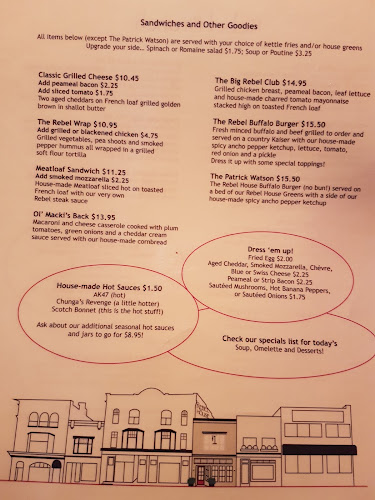 Sandwiches and Other Goodies
All items below (except The Patrick Watson) are served with your choice of kettle fries and/or house greens
Upgrade your side... Spinach or Romaine salad $1.75; Soup or Poutine $3.25
Classic Grilled Cheese $10.45
Add peameal bacon $2.25
Add sliced tomato $1.75
Two aged cheddars on French loaf grilled golden
brown in shallot butter
The Rebel Wrap $10.95
Add grilled or blackened chicken $4.75
Grilled vegetables, pea shoots and smoked
pepper hummus all wrapped in a grilled
soft flour tortilla
Meatloaf Sandwich $11.25
Add smoked mozzarella $2.25
House-made Meatloaf sliced hot on toasted
French loaf with our very own
Rebel steak sauce
Ol' Mack!'s Back $13.95
Macaroni and cheese casserole cooked with plum
tomatoes, green onions and a cheddar cream
sauce served with our house-made cornbread
The Big Rebel Club $14.95
Grilled chicken breast, peameal bacon, leaf lettuce
and house-made charred tomato mayonnaise
stacked high on toasted French loaf
The Rebel Buffalo Burger $15.50
Fresh minced buffalo and beef grilled to order and
served on a country Kaiser with our house-made
spicy ancho pepper ketchup, lettuce, tomato,
red onion and a pickle
Dress it up with some special toppings!
The Patrick Watson $15.50
The Rebel House Buffalo Burger (no bun!) served on
a bed of our Rebel House Greens with a side of our
house-made spicy ancho pepper ketchup
Dress 'em up!
Fried Egg $2.00
Aged Cheddar, Smoked Mozzarella, Chèvre,
Blue or Swiss Cheese $2.25
Peameal or Strip Bacon $2.25
Sautéed Mushrooms, Hot Banana Peppers,
or Sautéed Onions $1.75
House-made Hot Sauces $1.50
AK47 (hot)
Chunga's Revenge (a little hotter)
Scotch Bonnet (this is the hot stuff!)
Ask about our additional seasonal hot sauces
and jars to go for $8.95!
Check our specials list for today's
Soup, Omelette and Desserts!